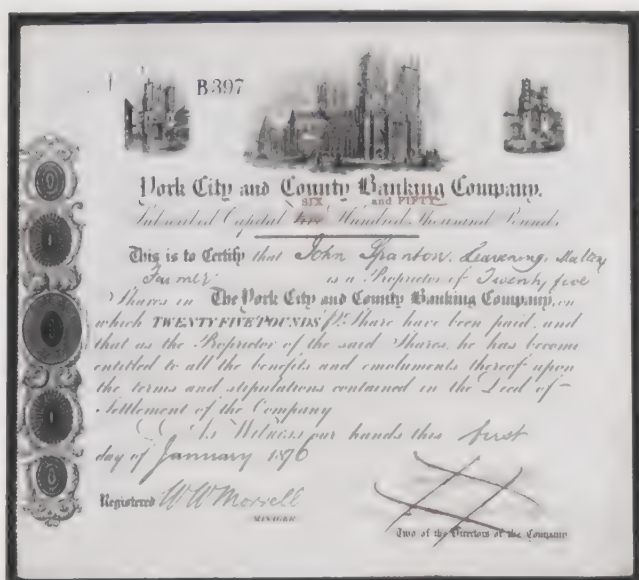 B397
York City and County Banking Company.
SIX and FIFTY
Subscribed Capital Five Hundred Thousand Pounds
This is to Certify that John Spanton, Leavening, Malton
Farmer is a Proprietor of Twenty five
Shares in The York City and County Banking Company, on
which TWENTY FIVE POUNDS Pr. Share have been paid, and
that as the Proprietor of the said Shares, he has become
entitled to all the benefits and emoluments thereof upon
the terms and stipulations contained in the Deed of
Settlement of the Company
As Witness our hands this first
day of January 1876
Registered W W Morrell
MANAGER
Two of the Directors of the Company